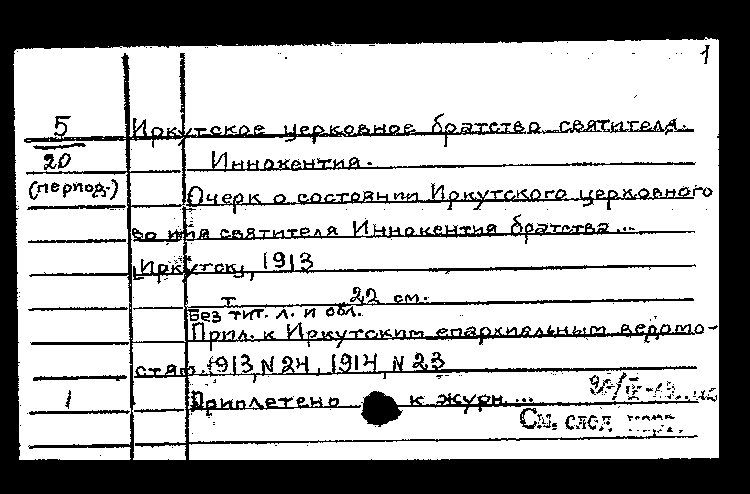 1
5 Иркутское церковное братство святителя
20 Иннокентия.
(период.) Очерк о состоянии Иркутского церковного
во имя святителя Иннокентия братства...
[Иркутск], 1913
т. 22 см.
Без тит. л. и обл.
Прил. к Иркутским епархиальным ведомо-
стям 1913, N 24, 1914, N 23
1 Приплетено к журн...
См. след.